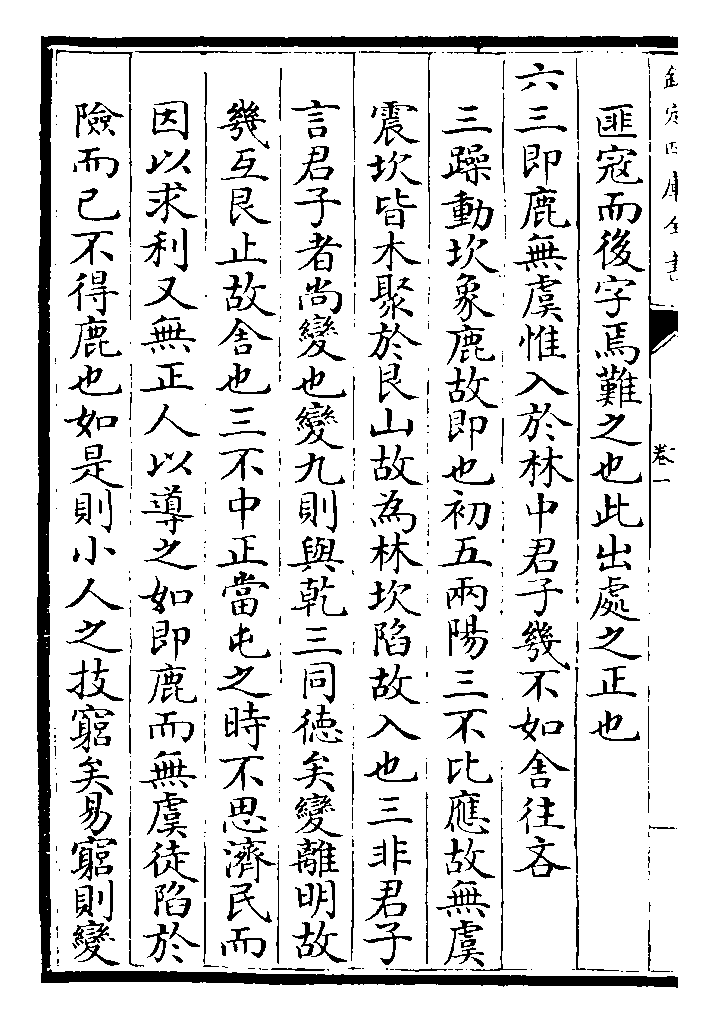 欽定四庫全書
卷一
匪寇而後字焉難之也此出處之正也
六三即鹿無虞惟入於林中君子幾不如舍往吝
三躁動坎象鹿故即也初五兩陽三不比應故無虞
震坎皆木聚於艮山故為林坎陷故入也三非君子
言君子者尚變也變九則與乾三同德矣變離明故
幾互艮止故舍也三不中正當屯之時不思濟民而
因以求利又無正人以導之如即鹿而無虞徒陷於
險而已不得鹿也如是則小人之技窮矣易窮則變